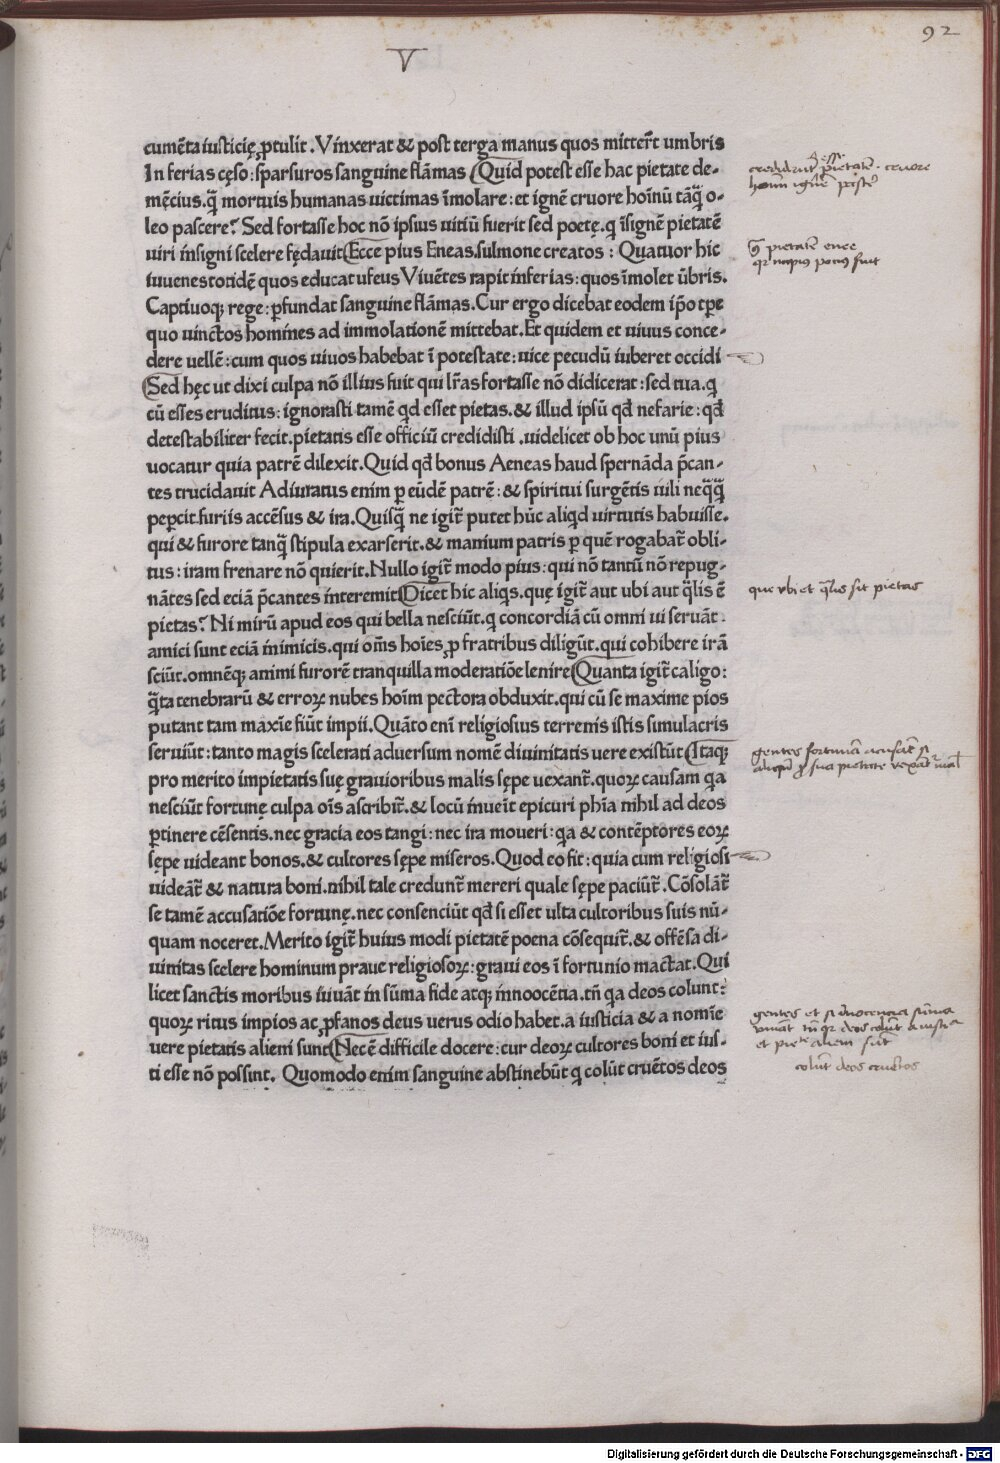 92
V
cumēta iusticię ꝓtulit. Vinxerat & post terga manus quos mitter̄t umbris
In ferias cęso: sparsuros sanguine flāmas Quid potest esse hac pietate de-
mēcius. q̄ mortuis humanas uictimas īmolare: et ignē cruore hoīnū tāq̄ o-
leo pascere? Sed fortasse hoc nō ipsius uitiū fuerit sed poetę. q īsignē pietatē
uiri insigni scelere fędauit Ecce pius Eneas. sulmone creatos: Quatuor hic
iuuenes totidē quos educat ufeus Viuētes rapit inferias: quos īmolet ūbris.
Captiuoqꝫ rege: ꝑfundat sanguine flāmas. Cur ergo dicebat eodem ip̄o tꝑe
quo uinctos homines ad immolationē mittebat. Et quidem et uiuus conce-
dere uellē: cum quos uiuos habebat ī potestate: uice pecudū iuberet occidi
Sed hęc ut dixi culpa nō illius fuit qui lr̄as fortasse nō didicerat: sed tua. q
cū esses eruditus: ignorasti tamē qd̄ esset pietas. & illud ipsū qd̄ nefarie: qd̄
detestabiliter fecit. pietatis esse officiū credidisti. uidelicet ob hoc unū pius
uocatur quia patrē dilexit. Quid qd̄ bonus Aeneas haud spernāda p̄can-
tes trucidauit Adiuratus enim ꝑ eūdē patrē: & spiritui surgētis iuli neq̄q̄
peꝑcit. furiis accēsus & ira. Quisq̄ ne igit̄ putet hūc aliqd uirtutis habuisse.
qui & furore tanq̄ stipula exarserit. & manium patris ꝑ quē rogabat̄ obli-
tus: iram frenare nō quierit. Nullo igit̄ modo pius: qui nō tantū nō repug-
nātes sed eciā p̄cantes interemit Dicet hic aliqs. quę igit̄ aut ubi aut q̄lis ē
pietas? Ni mirū apud eos qui bella nesciūt. q concordiā cū omni ui seruāt.
amici sunt eciā inimicis. qui om̄s hoīes ꝓ fratribus diligūt. qui cohibere irā
sciūt. omnēqꝫ animi furorē tranquilla moderatiōe lenire Quanta igit̄ caligo:
q̄ta tenebrarū & erroꝝ nubes hoīm pectora obduxit. qui cū se maxime pios
putant tam maxīe fiūt impii. Quāto enī religiosius terrenis istis simulacris
seruiūt: tanto magis scelerati aduersum nomē diuinitatis uere existūt Itaqꝫ
pro merito impietatis suę grauioribus malis sępe uexant̄. quoꝝ causam qa
nesciūt fortunę culpa oīs ascribit̄. & locū inueīt epicuri phīa nihil ad deos
ꝑtinere cēsentis. nec gracia eos tangi: nec ira moueri: qa & contēptores eoꝝ
sępe uideant bonos. & cultores sępe miseros. Quod eo fit: quia cum religiosi
uideāt̄ & natura boni. nihil tale credunt̄ mereri quale sępe paciūt̄. Cōsolāt̄
se tamē accusatiōe fortunę. nec consenciūt qd̄ si esset ulta cultoribus suis nū-
quam noceret. Merito igit̄ huius modi pietatē poena cōsequit̄. & offēsa di-
uinitas scelere hominum praue religiosoꝝ: graui eos ī fortunio mactat. Qui
licet sanctis moribus uiuāt in sūma fide atqꝫ innoocētia. tn̄ qa deos colunt:
quoꝝ ritus impios ac ꝓfanos deus uerus odio habet. a iusticia & a nomīe
uere pietatis alieni sunt Nec ē difficile docere: cur deoꝝ cultores boni et ius-
ti esse nō possint. Quomodo enim sanguine abstinebūt q colūt cruētos deos
esse
pietatē cruore
pietatē enee
que vbi et qlis sit pietas
gentes fortunā accusāt si
sua pietate
gentes et si innocencia sūma
viuāt tn̄ qr deos colūt a iusticia
et pietate alieni sūt
colūt deos cruētos
Digitalisierung gefördert durch die Deutsche Forschungsgemeinschaft - DFG